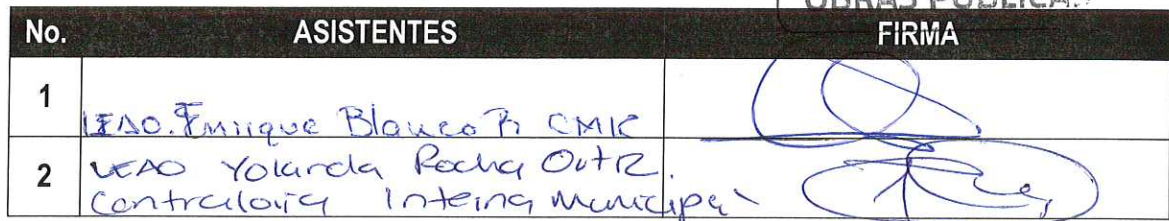 OBRAS PÚBLICA
No. ASISTENTES FIRMA
1
Enrique Blanco R CMIC
2 Yolanda Rocha
Contraloria Interna Municipal